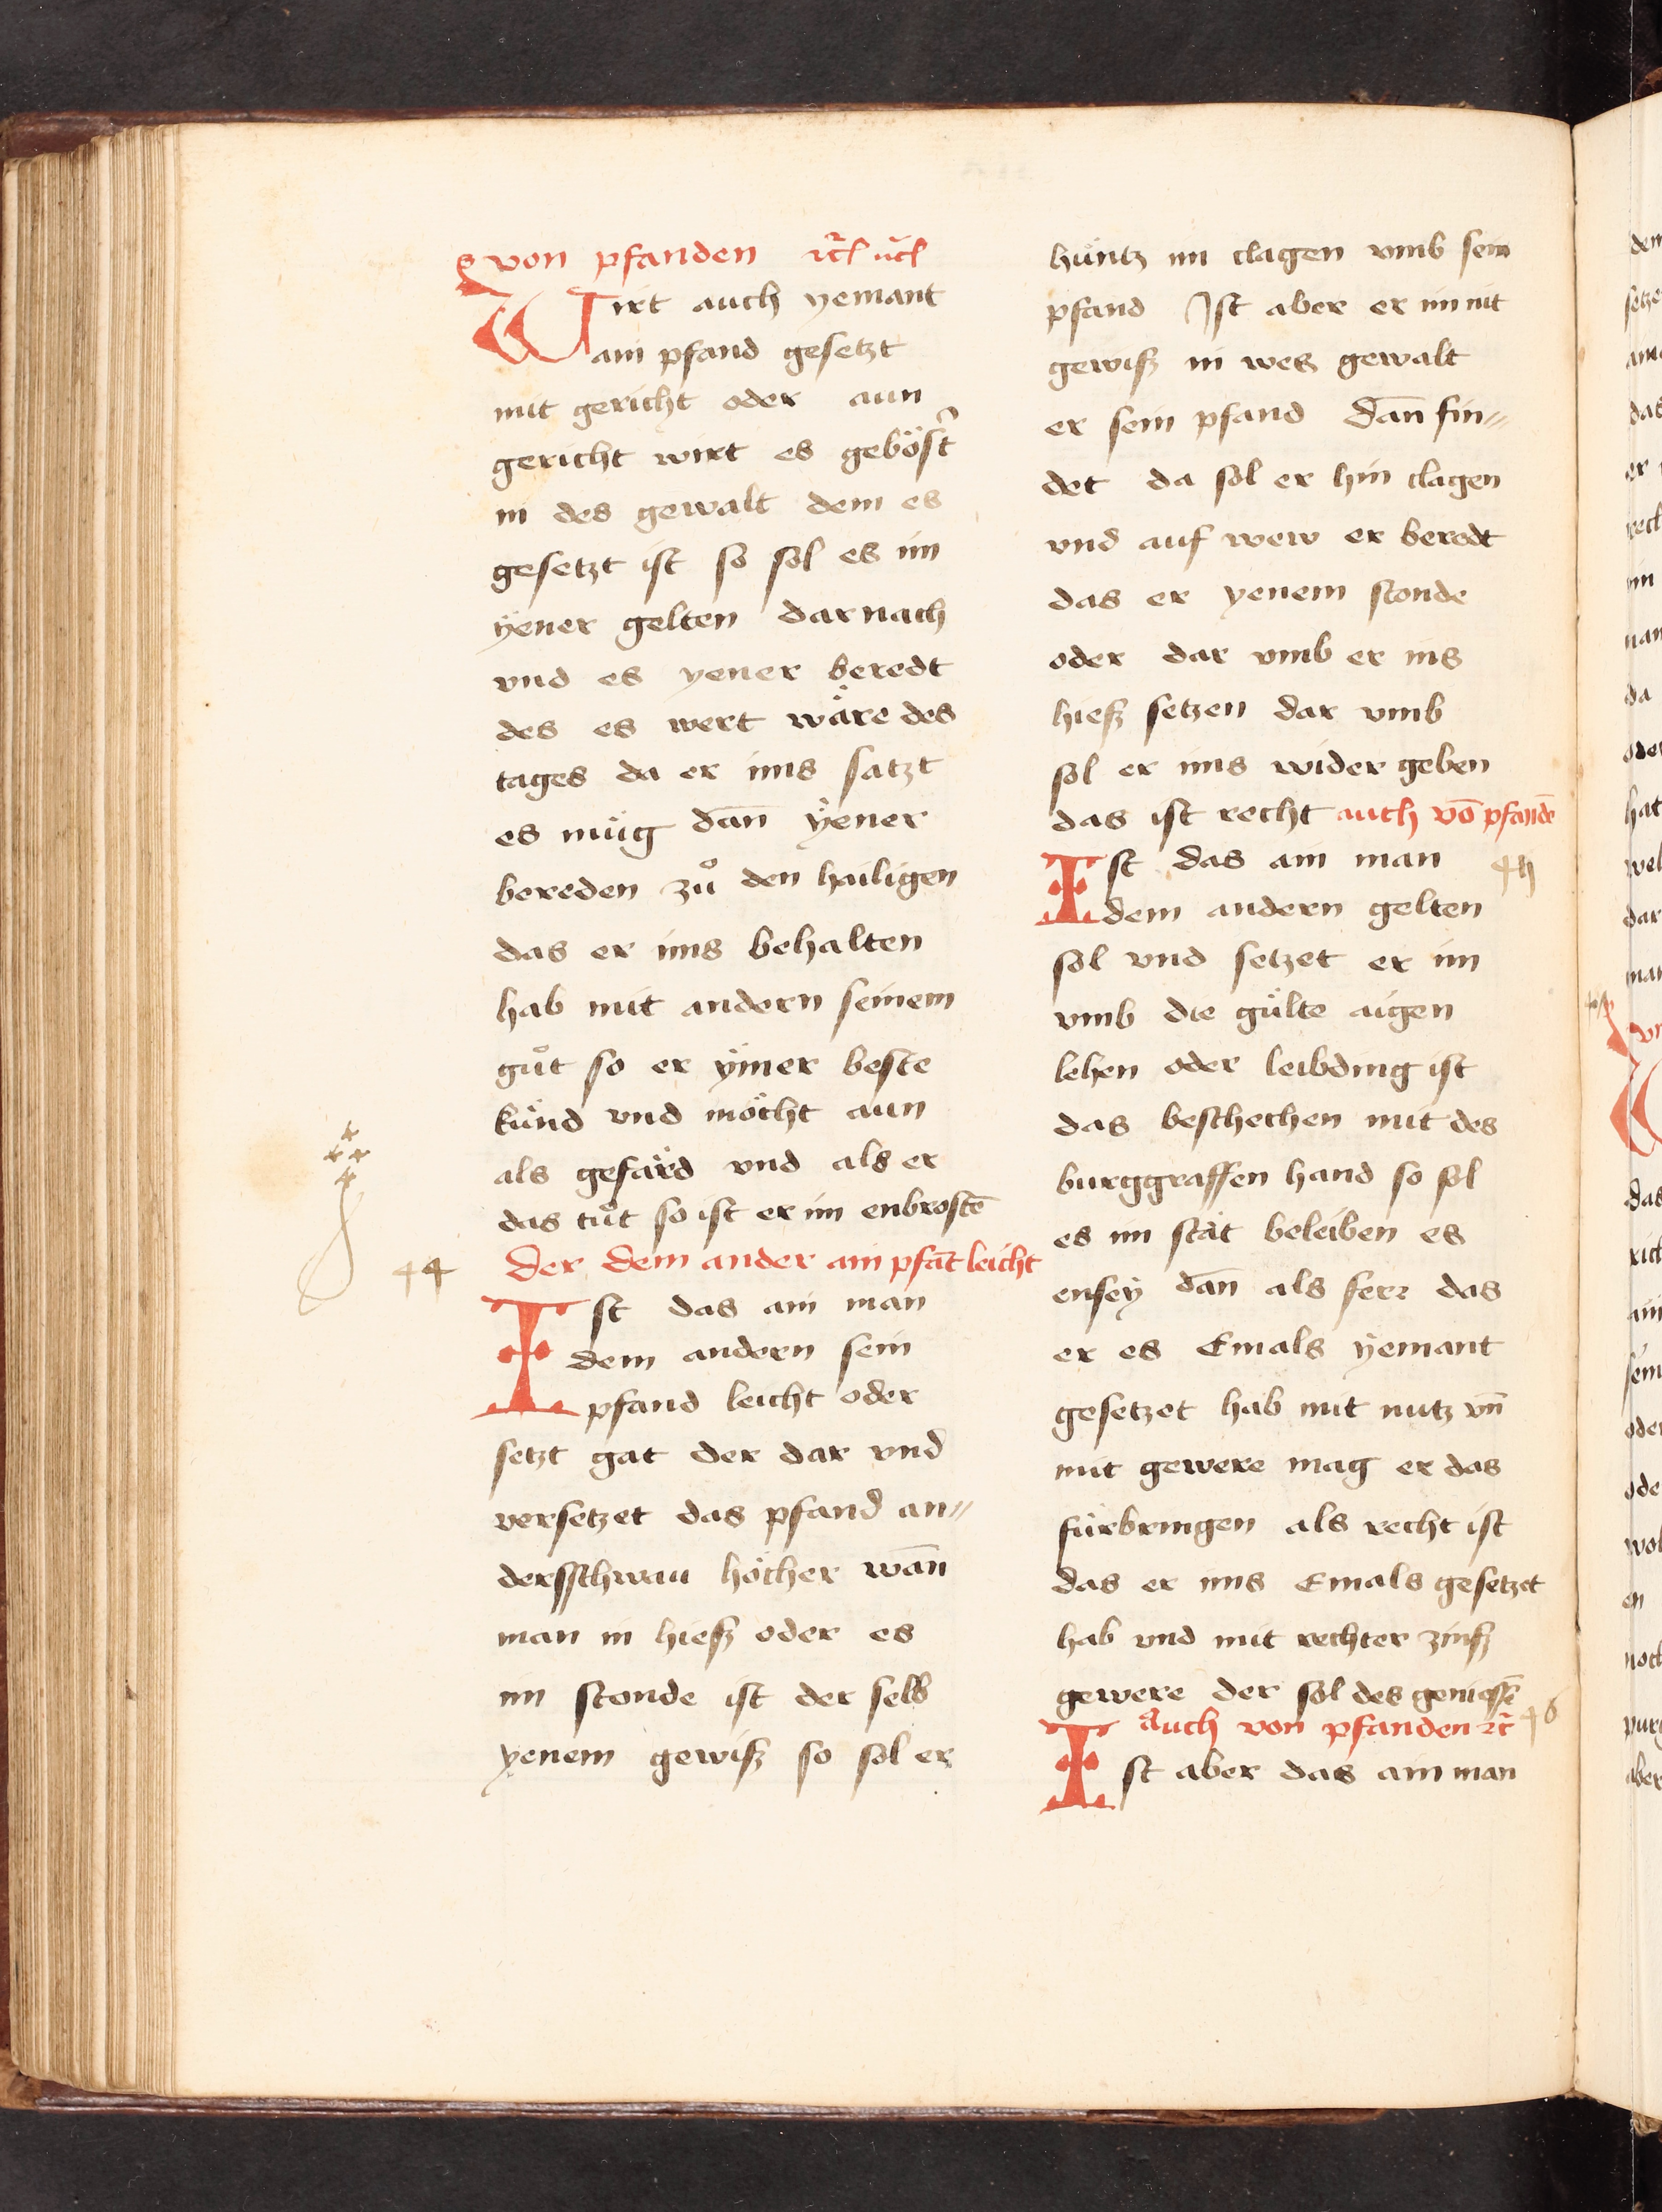 von pfanden
Wirt auch yemant
ain pfand gesetzt
mit gericht oder aun
gericht wirt es geböst
in des gewalt dem es
gesetzt ist so sol es im
yener gelten dar nach
vnd es yener beredt
des es wert wäre des
tages da er ims satzt
es müg dan̄ yener
bereden zů den hailigen
das er ims behalten
hab mit andern seinem
gůt so er ymer beste
künd vnd möcht aun
als gefärd vnd als er
das tůt so ist er im enbrostē
44 der dem ander ain pfāt leicht
Ist das ain man
dem andern sein
pfand leicht oder
setzt gat der dar vnd
versetzet das pfand an=
dersschwau höcher wān
man in hiesz oder es
im stonde ist der selb
yenem gewisz so sol er
hüntz im clagen vmb sein
pfand Ist aber er im nit
gewisz in wes gewalt
er sein pfand dān fin=
det da sol er hin clagen
vnd auf wew er beredt
das er yenem stonde
oder dar vmb er ins
hiesz setzen dar vmb
sol er ims wider geben
das ist recht auch vō pfandē
Ist das ain man
dem andern gelten
sol vnd setzet er im
vmb die gülte aigen
lehen oder leibding ist
das beschechen mit des
burggraffen hand so sol
es im stät beleiben es
ensey dān als ferr das
er es Emals yemant
gesetzet hab mit nutz vn̄
mit gewere mag er das
fürbringen als recht ist
das er ims Emals gesetzet
hab vnd mit rechter zinsz
gewere der sol des geniessē
Auch von pfanden rc̄ 46
Ist aber das ain man